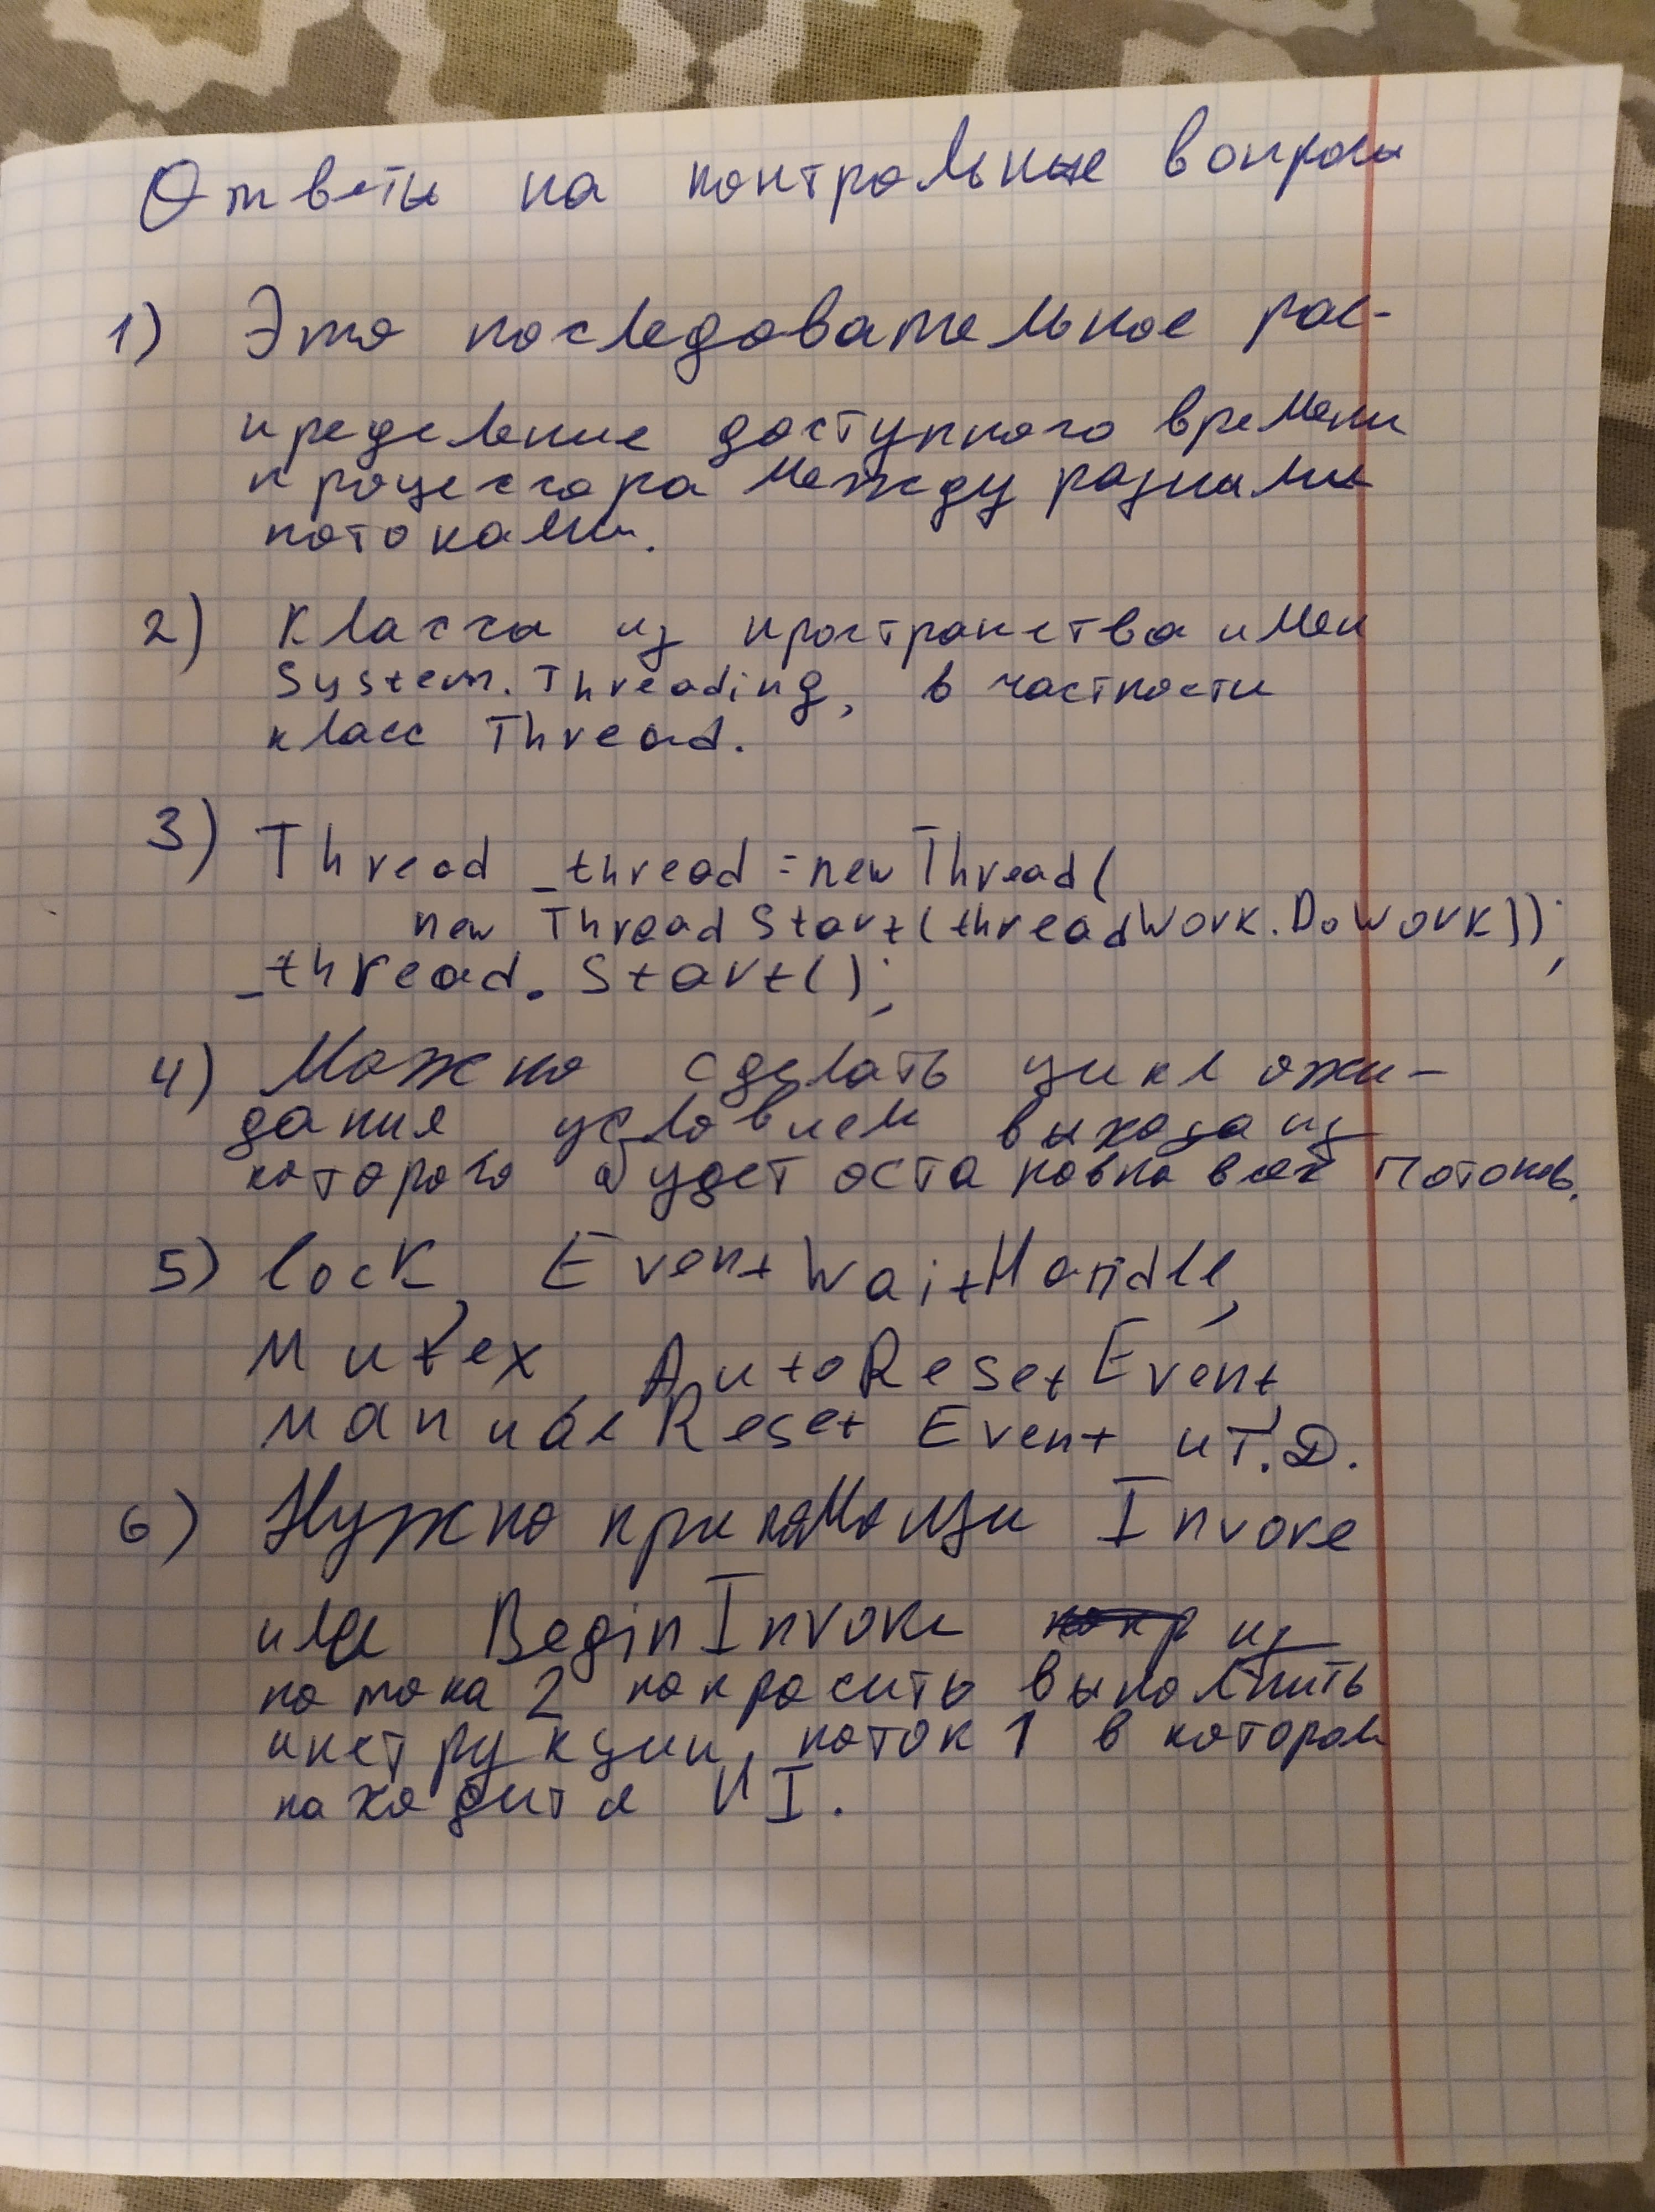 Ответы на контрольные вопросы
1) Это последовательное рас-
пределение доступного времени
процессора между разными
потоками.
2) Класса из пространства имен
System.Threading, в частности
класс Thread.
3) Thread _thread = new Thread(
new ThreadStart(threadWork.DoWork));
_thread.Start();
4) Можно сделать цикл ожи-
дания условием выхода из
которого будет остановка всех потоков.
5) lock, EventWaitHandle,
Mutex, AutoResetEvent,
ManualResetEvent и т.д.
6) Нужно при помощи Invoke
или BeginInvoke из
потока 2 попросить выполнить
инструкции, поток 1 в котором
находится UI.